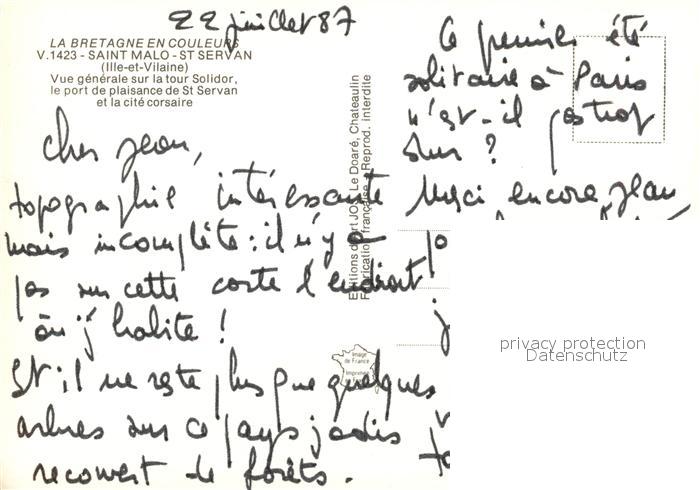 22 juillet 87
LA BRETAGNE EN COULEURS
V.1423 - SAINT MALO - ST SERVAN
(Ille-et-Vilaine)
Vue générale sur la tour Solidor,
le port de plaisance de St Servan
et la cité corsaire
cher Jean,
topographie intéressante
mais incomplète : il n'y a
pas sur cette carte l'endroit
où j'habite !
Et il ne reste plus que quelques
arbres sur ce pays jadis
recouvert de forêts.
Editions d'art JOS Le Doaré, Chateaulin
Fabrication française - Reprod. interdite
Image
de France
Imprimée
Ce premier été
solitaire à Paris
n'est-il pas trop
dur ?
Merci encore Jean,
privacy protection
Datenschutz